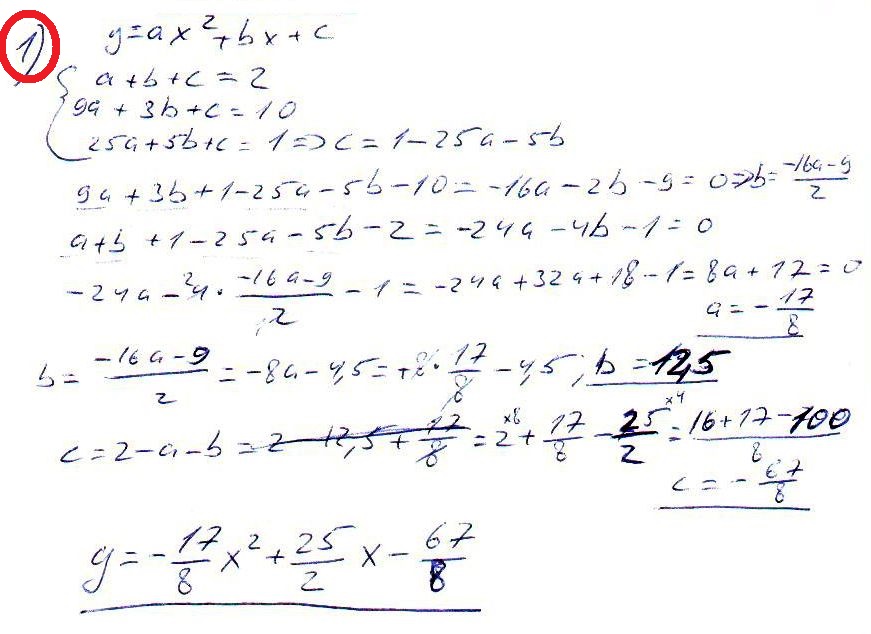 1) y=ax²+bx+c
{ a+b+c=2
9a+3b+c=10
25a+5b+c=1=>c=1-25a-5b
9a+3b+1-25a-5b-10=-16a-2b-9=0=>b=(-16a-9)/2
a+b+1-25a-5b-2=-24a-4b-1=0
-24a-4·(-16a-9)/2-1=-24a+32a+18-1=8a+17=0
a=-17/8
b=(-16a-9)/2=-8a-4,5=+8·17/8-4,5; b=12,5
c=2-a-b=2-12,5+17/8=2+17/8-25/2=(16+17-100)/8
c=-67/8
y=-17/8x²+25/2x-67/8